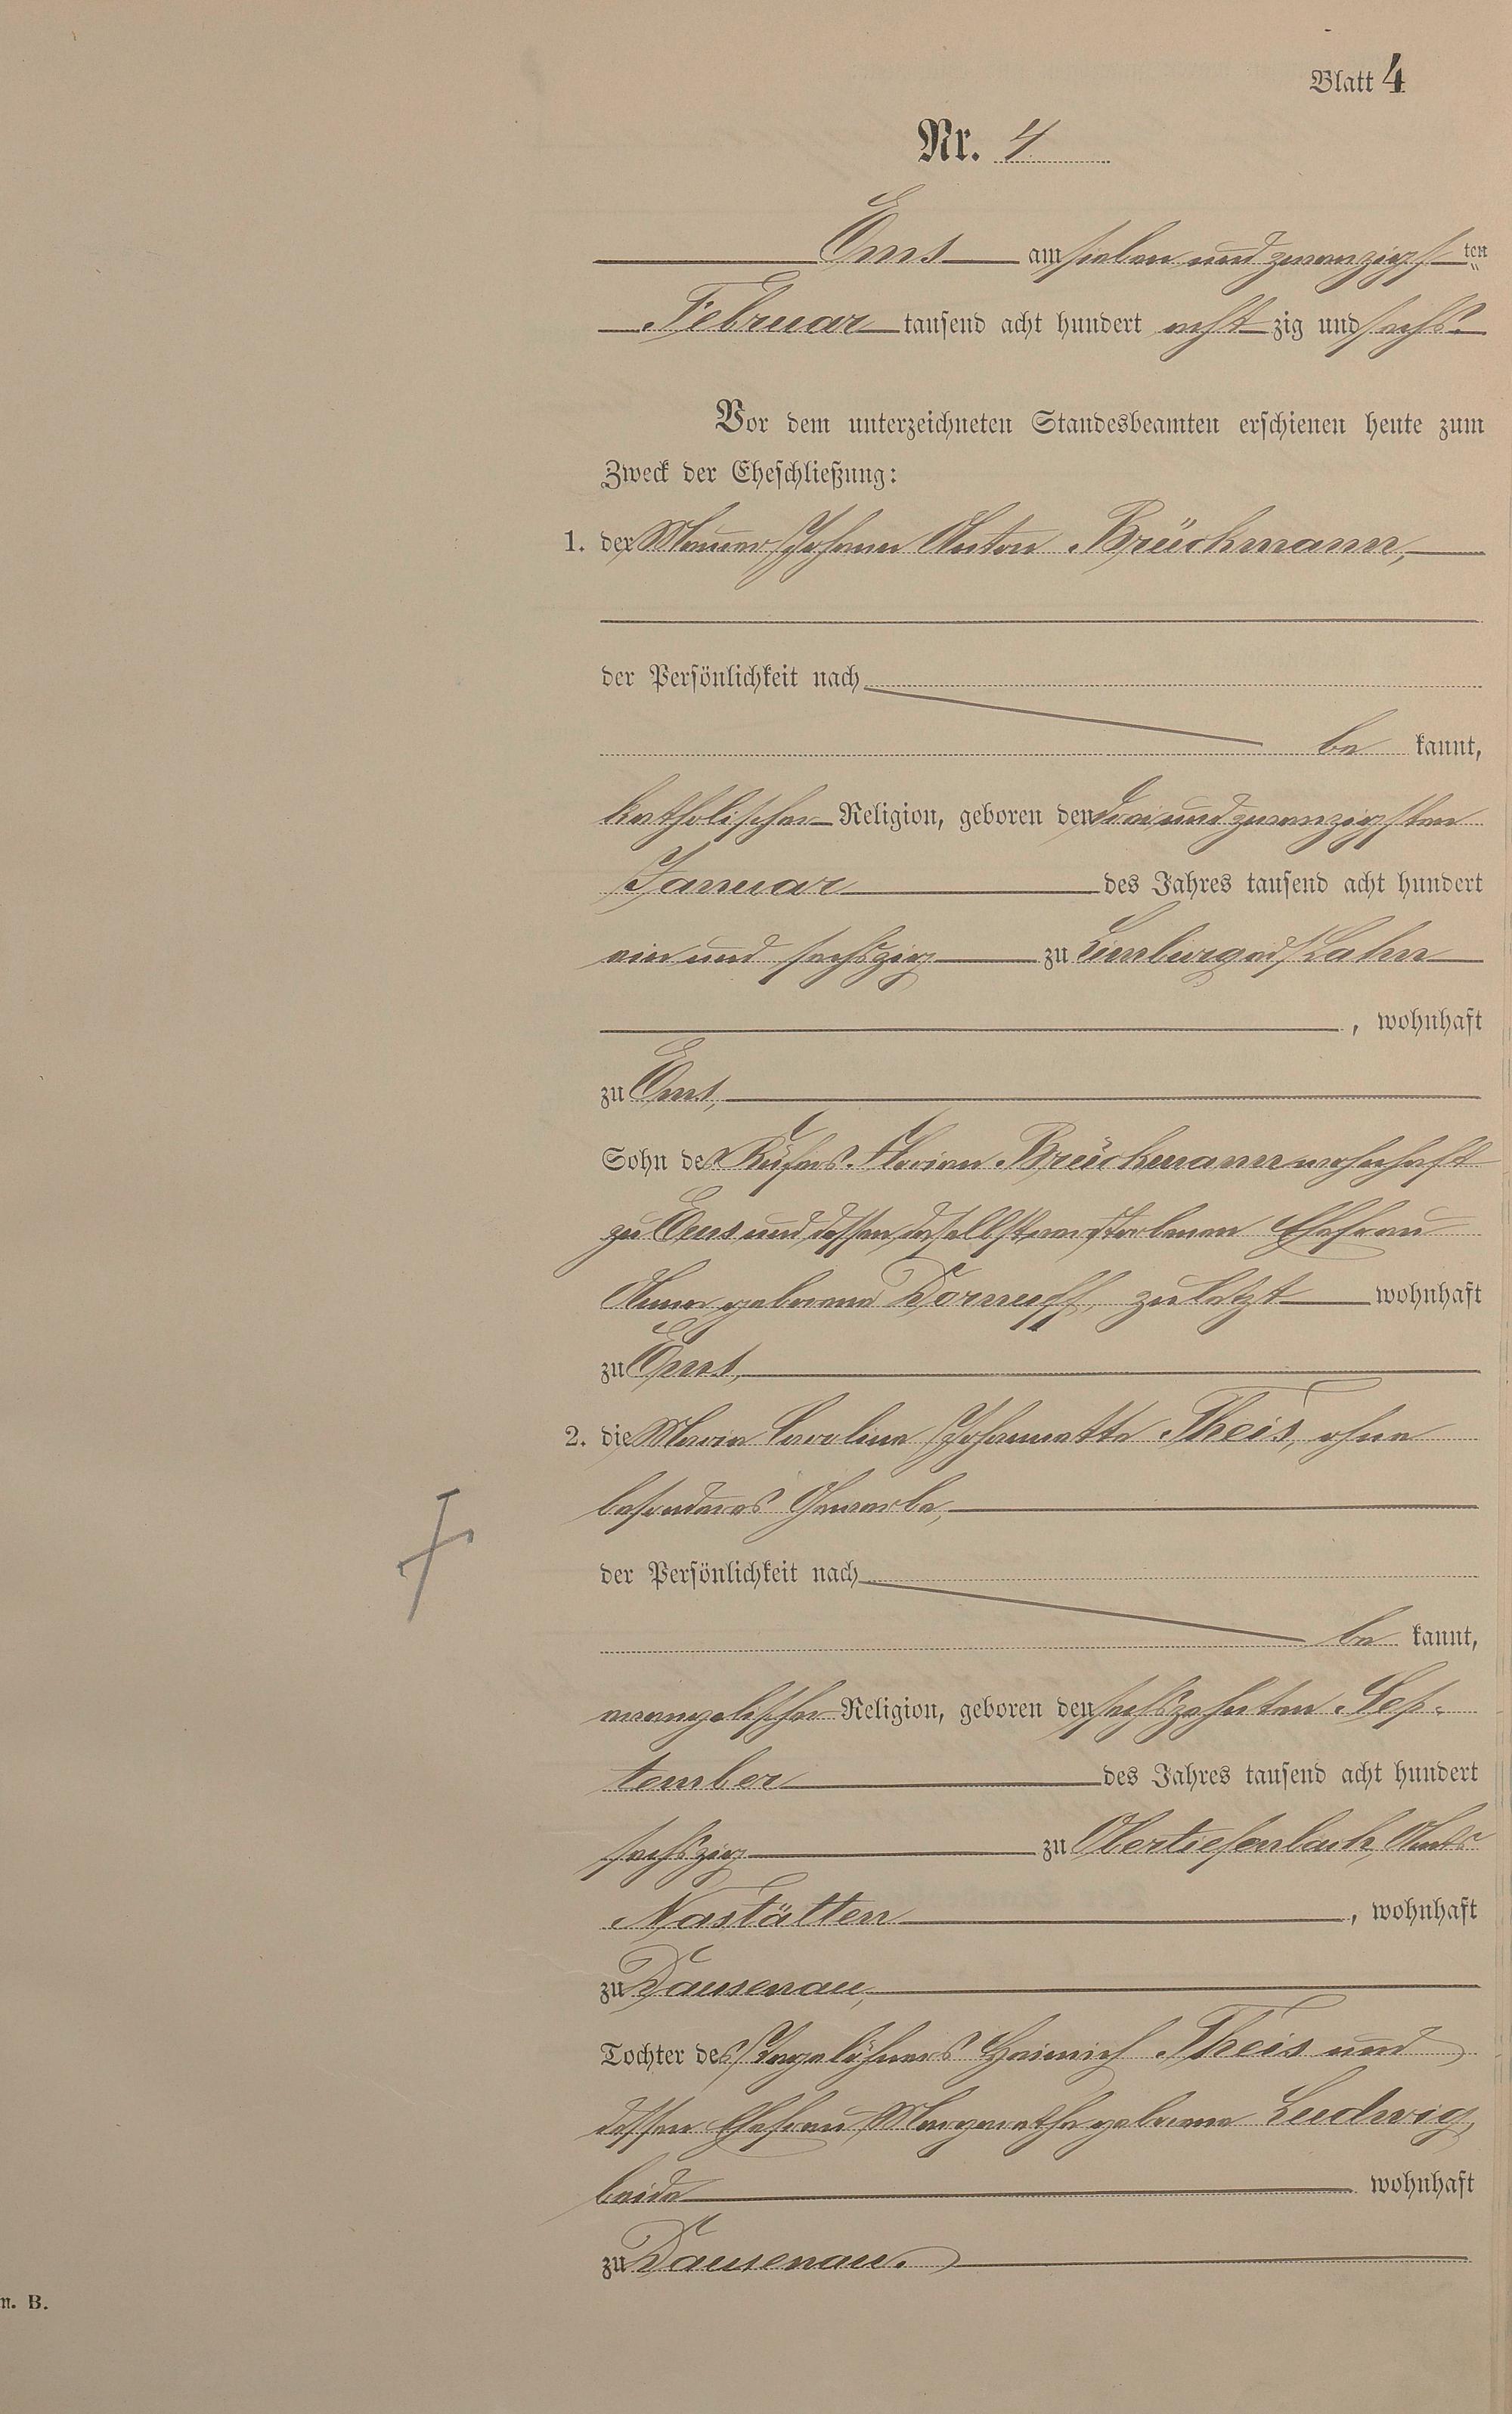 Blatt 4
Nr. 4
Ems am sieben und zwanzigst ten
Februar tausend acht hundert acht zig und sechs
Vor dem unterzeichneten Standesbeamten erschienen heute zum
Zweck der Eheschließung:
1. der Maurer Johann Anton Brückmann,
der Persönlichkeit nach
be kannt,
katholischer Religion, geboren den drei und zwanzigsten
Januar des Jahres tausend acht hundert
ein und sechszig zu Limburg a/d Lahn
, wohnhaft
zu Ems,
Sohn des Küfers Florian Brückmann wohnhaft
zu Ems und dessen daselbst verstorbenen Ehefrau
Anna geborene Dornuff, zuletzt wohnhaft
zu Ems,
2. die Maria Caroline Johannette Theis, ohne
besonderes Gewerbe,
der Persönlichkeit nach
be kannt,
evangelischer Religion, geboren den sechszehnten Sep-
tember des Jahres tausend acht hundert
sechszig zu Obertiefenbach, Amts
Nastätten, wohnhaft
zu Dausenau,
Tochter des Tagelöhners Heinrich Theis und
dessen Ehefrau Margaretha geborene Ludwig,
beide wohnhaft
zu Dausenau.
n. B.